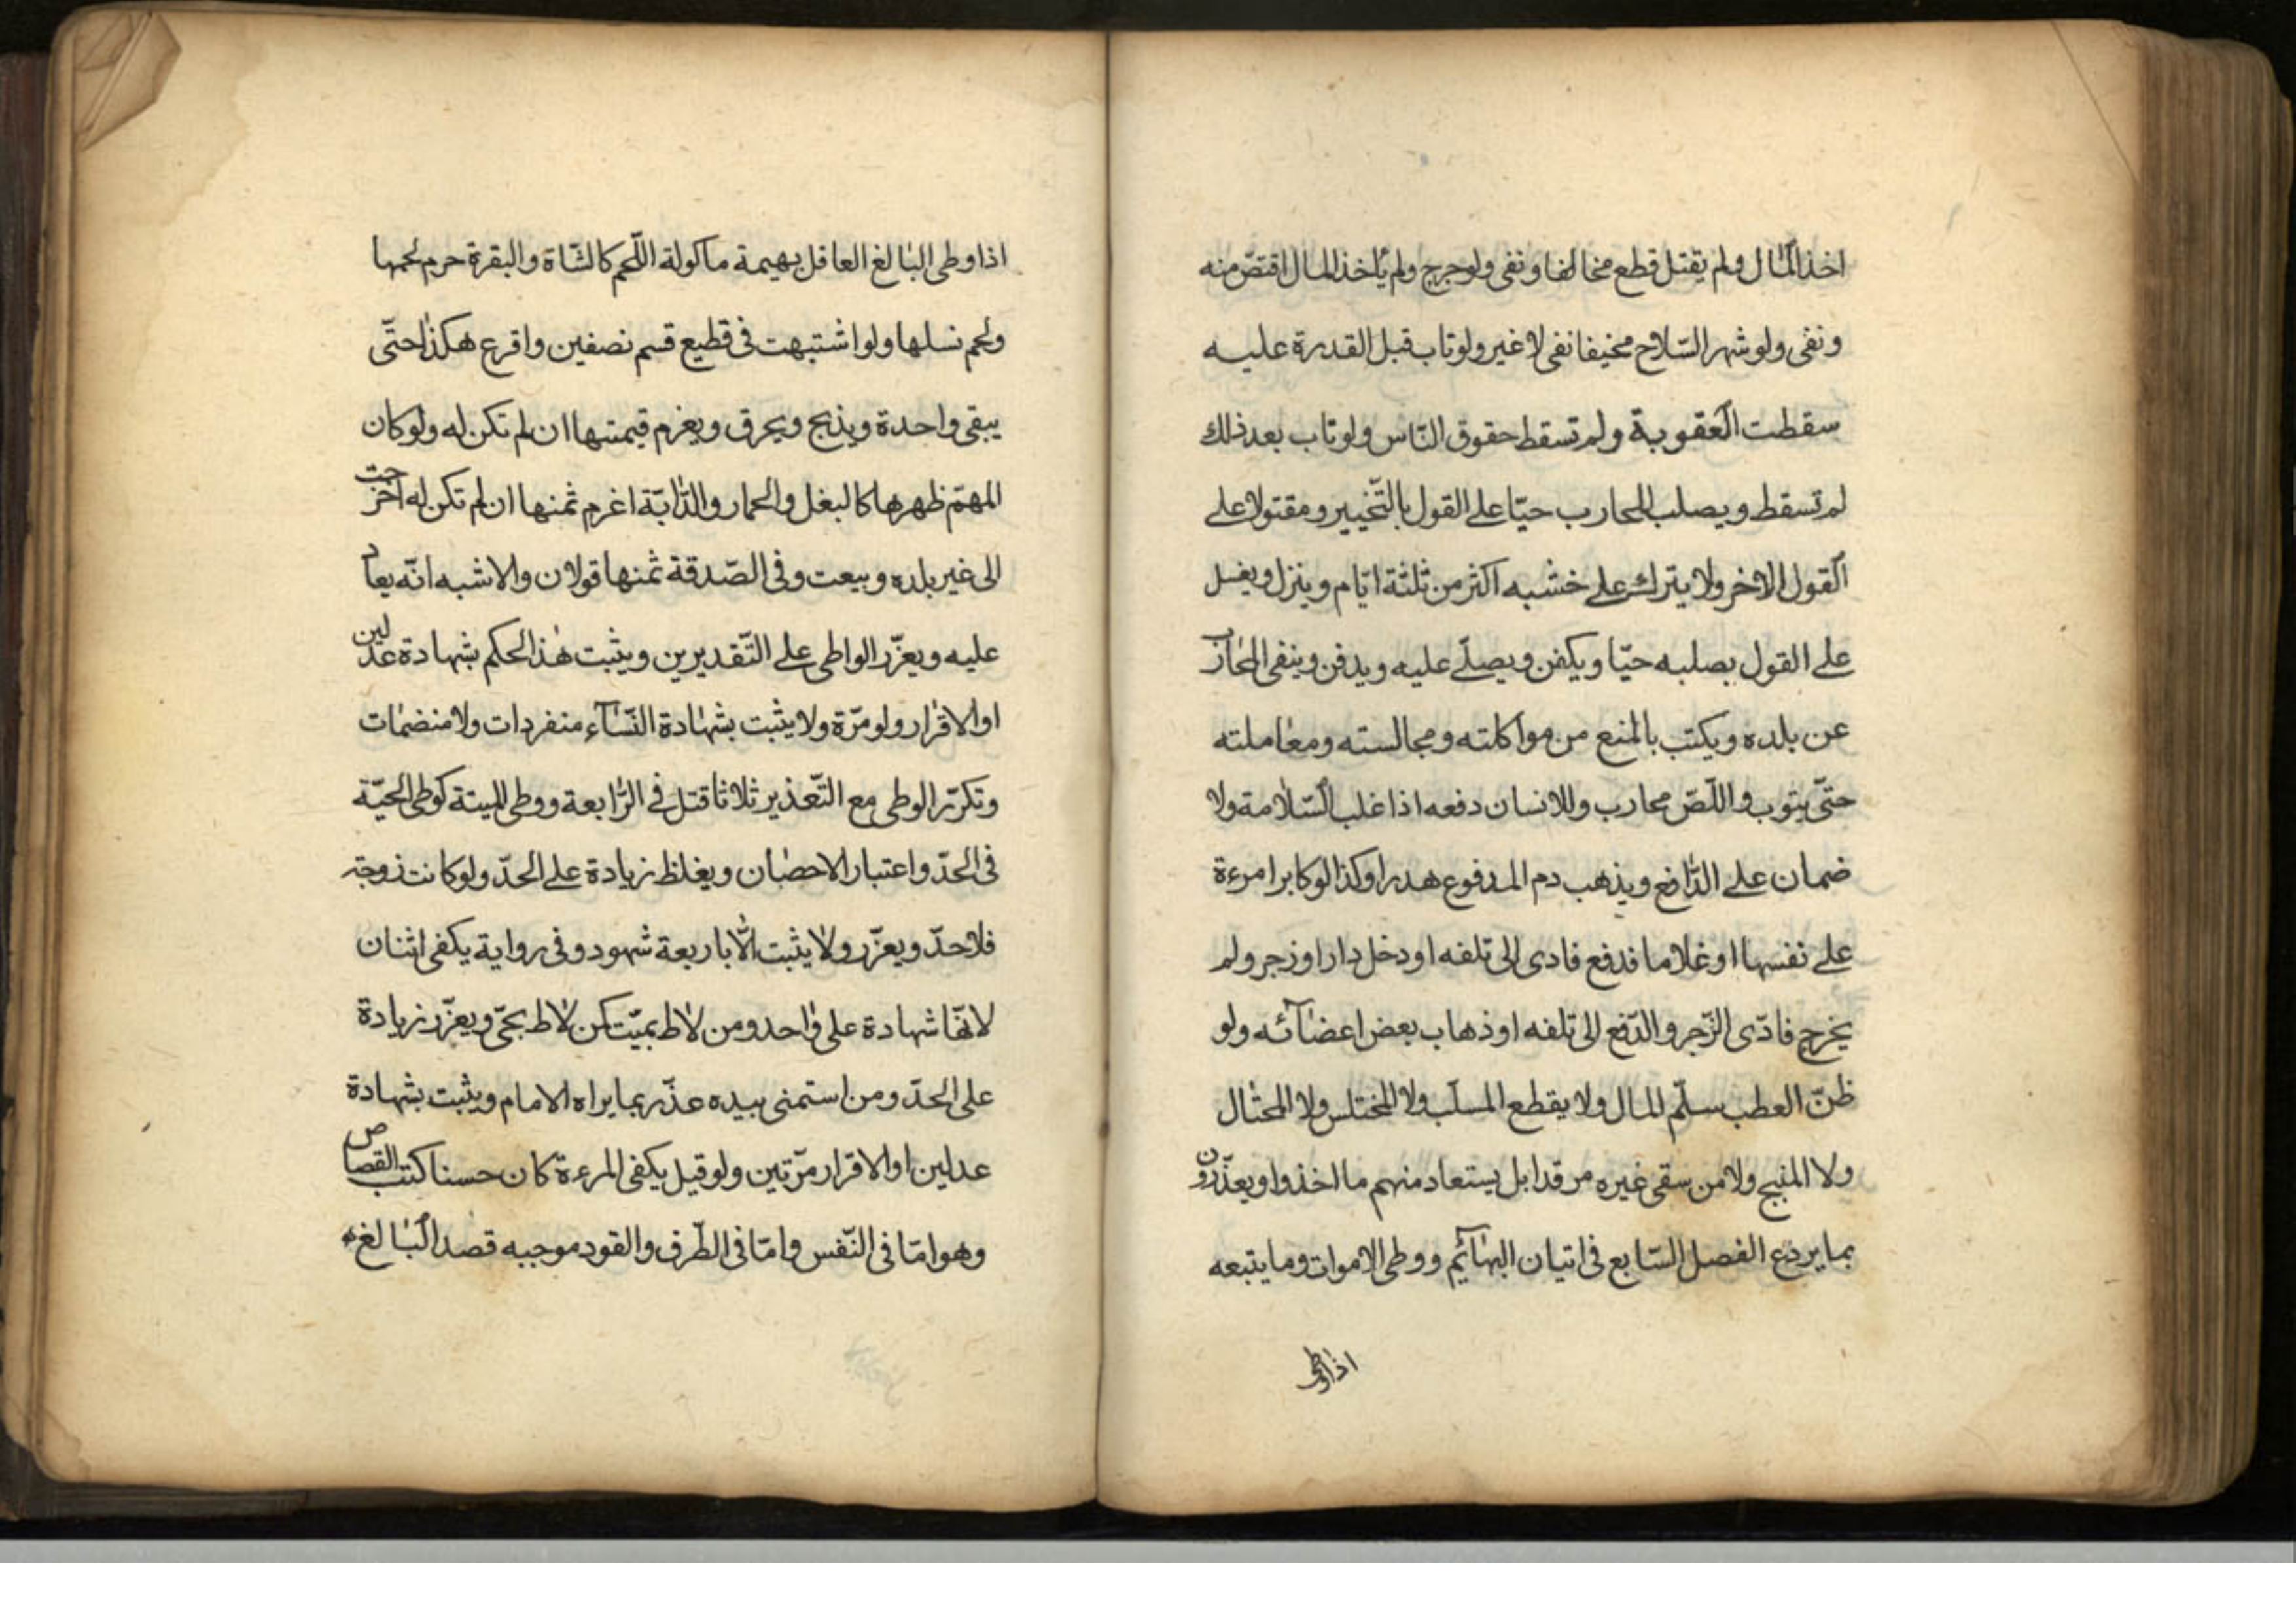 اخذ المال ولم يقتل قطع مخالفا ونفى ولو جرح ولم يأخذ المال اقتصّ منه
ونفى ولو شهر السّلاح مخيفا نفى لا غير ولو تاب قبل القدرة عليه
سقطت العقوبة ولم تسقط حقوق النّاس ولو تاب بعد ذلك
لم تسقط ويصلب المحارب حيّا على القول بالتّخيير ومقتولا على
القول الاخر ولا يترك على خشبه اكثر من ثلثة ايّام وينزل ويغسل
على القول بصلبه حيّا ويكفن ويصلّى عليه ويدفن وينفى المحارب
عن بلده ويكتب بالمنع من مواكلته ومجالسته ومعاملته
حتّى يتوب واللّصّ محارب وللانسان دفعه اذا غلب السّلامة ولا
ضمان على الدّافع ويذهب دم المدفوع هدرا وكذا لو كابر امرءة
على نفسها او غلاما فدفع فادى الى تلفه او دخل دارا وزجر ولم
يخرج فادّى الزّجر والدّفع الى تلفه او ذهاب بعض اعضآئه ولو
ظنّ العطب سلّم المال ولا يقطع المسلّب ولا المختلس ولا المحتال
ولا المنبج ولا من سقى غيره مرقدا بل يستعاد منهم ما اخذوا ويعذّرون
بما يردع الفصل السّابع فى اتيان البهآئم ووطى الاموات وما يتبعه
اذا وطى
اذا وطى البالغ العاقل بهيمة ماكولة اللّحم كالشّاة والبقرة حرم لحمها
ولحم نسلها ولو اشتبهت فى قطيع قسم نصفين واقرع هكذا حتّى
يبقى واحدة ويذبح ويحرق ويغرم قيمتها ان لم تكن له ولو كان
المهمّ ظهرها كالبغل والحمار والدّابّة اغرم ثمنها ان لم تكن له اخرجت
الى غير بلده وبيعت وفى الصّدقة ثمنها قولان والاشبه انّه يعاد
عليه ويعزّر الواطى على التّقديرين ويثبت هذا الحكم بشهادة عدلين
او الاقرار ولو مرّة ولا يثبت بشهادة النّسآء منفردات ولا منضمات
وتكرّر الوطى مع التّعذير ثلاثا قتل فى الرّابعة ووطى الميتة كوطى الحيّة
فى الحدّ واعتبار الاحصان ويغلظ زيادة على الحدّ ولو كانت زوجته
فلا حدّ ويعزّر ولا يثبت الّا باربعة شهود وفى رواية يكفى اثنان
لانّها شهادة على واحد ومن لاط بميّت كمن لاط بحىّ ويعزّر زيادة
على الحدّ ومن استمنى بيده عذّر بما يراه الامام ويثبت بشهادة
عدلين او الاقرار مرّتين ولو قيل يكفى المرءة كان حسنا كتب القصاص
وهو امّا فى النّفس وامّا فى الطّرف والقود موجبه قصد البالغ